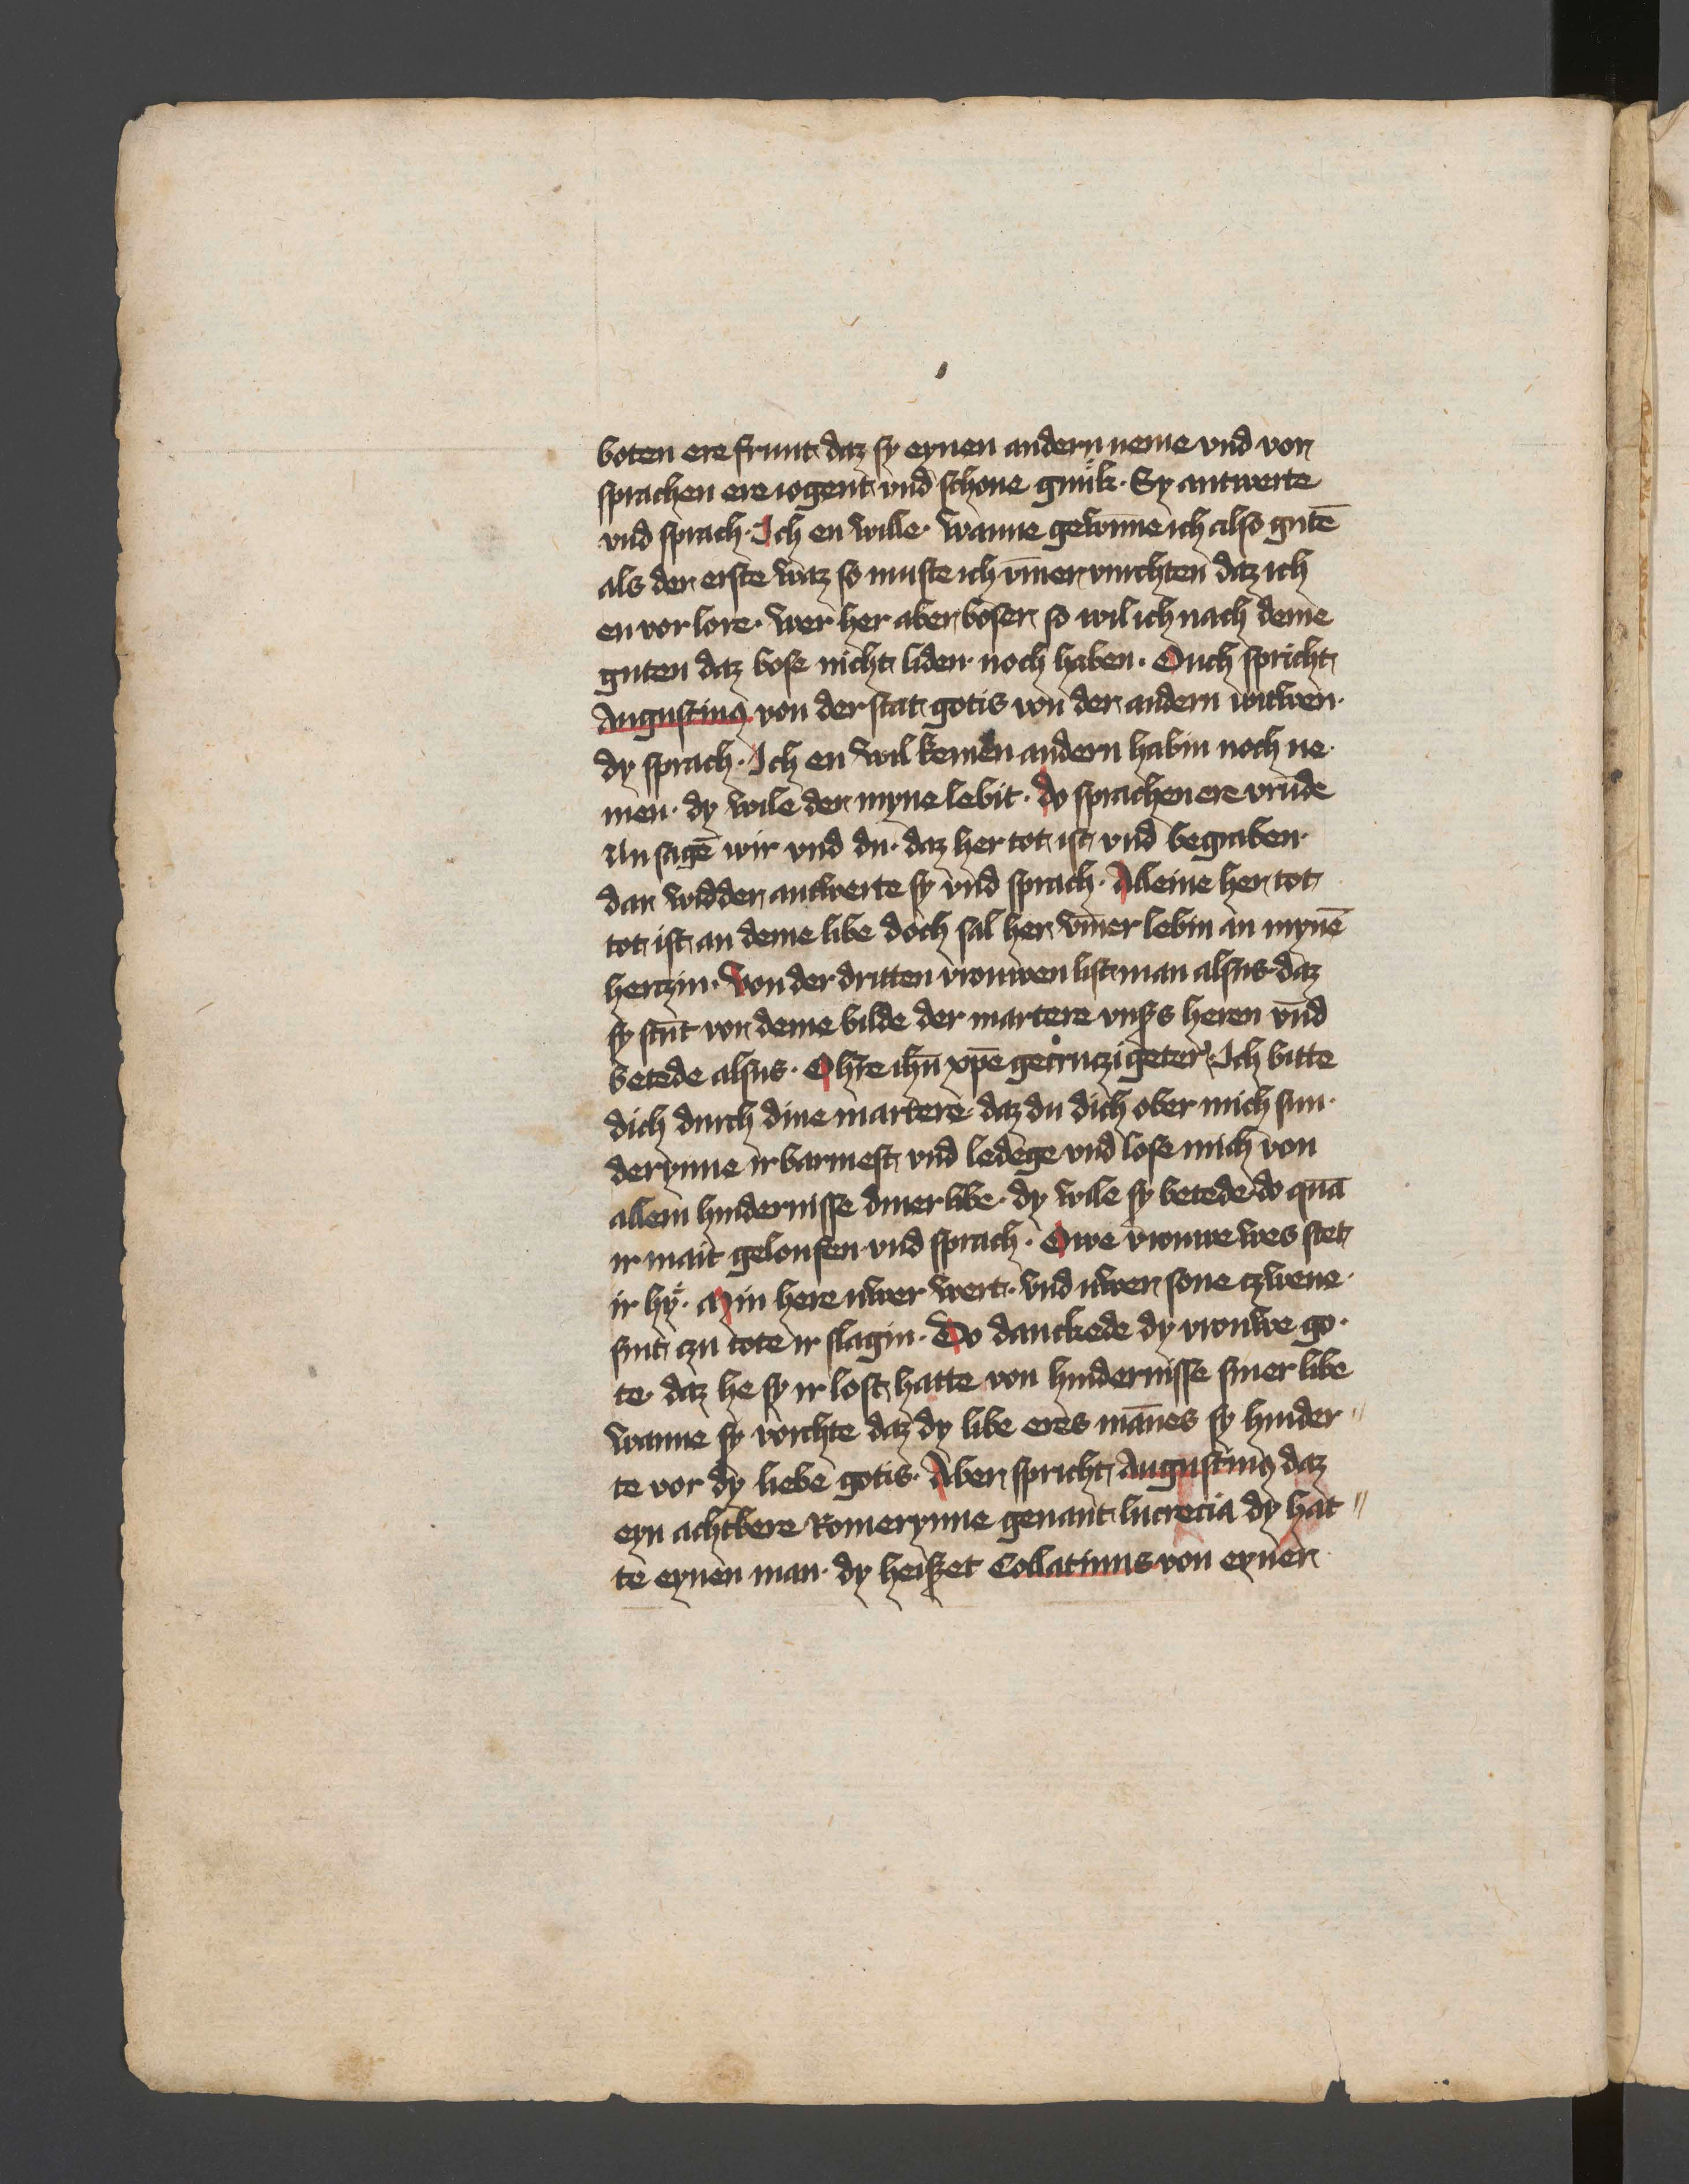 boten ere frunt daz sy eynen andern neme vnd vor
sprachen ere iogent vnd schone gnuk. Sy antwerte
vnd sprach. Ich en wille. wanne gewῑne ich also gutē
als der erste waz so muste ich vm̄er vurchten daz ich
en vor lore. wer her aber boser so wil ich nach deme
guten daz bose nicht liden noch haben. Ouch spricht
Augustinꝰ von der stat gotis von der andern witwen.
dy sprach. Ich en wil keinen andern habin noch ne
men. dy wile der myne lebit. do sprachen ere vrūde
Nu sagē wir vnd du. daz her tot ist vnd begraben
dar widder antwerte sy vnd sprach. Alleine her tot
tot ist an deme libe doch sal her vm̄er lebin in mynē
herczin. Von der dritten vrouwen list man alsus. daz
sy stūt vor deme bilde der martere vnsers heren vnd
betede alsus. O hře ihū xp̄e gecruczigeter. Ich bitte
dich durch dine martere daz du dich ober mich sun
derynne irbarmest vnd ledege vnd lose mich von
allem hindernisse diner libe. dy wile sy betede do quā
ir mait geloufen vnd sprach. Owe vrouwe wes stet
ir hy. Min here uwer wert. vnd uwer sone czwene
sint czu tote ir slagin. Do danckede dy vrouwe go
te. daz he sy ir lost hatte von hindernisse siner libe
wanne sy vorchte daz dy libe eres mānes sy hinder〃
te vor dy liebe gotis. Aber spricht Augustinꝰ daz
eyn achtbere Romerynne genant lucrecia dy hat〃
te eynen man. dy heiset Collatinus von eyner